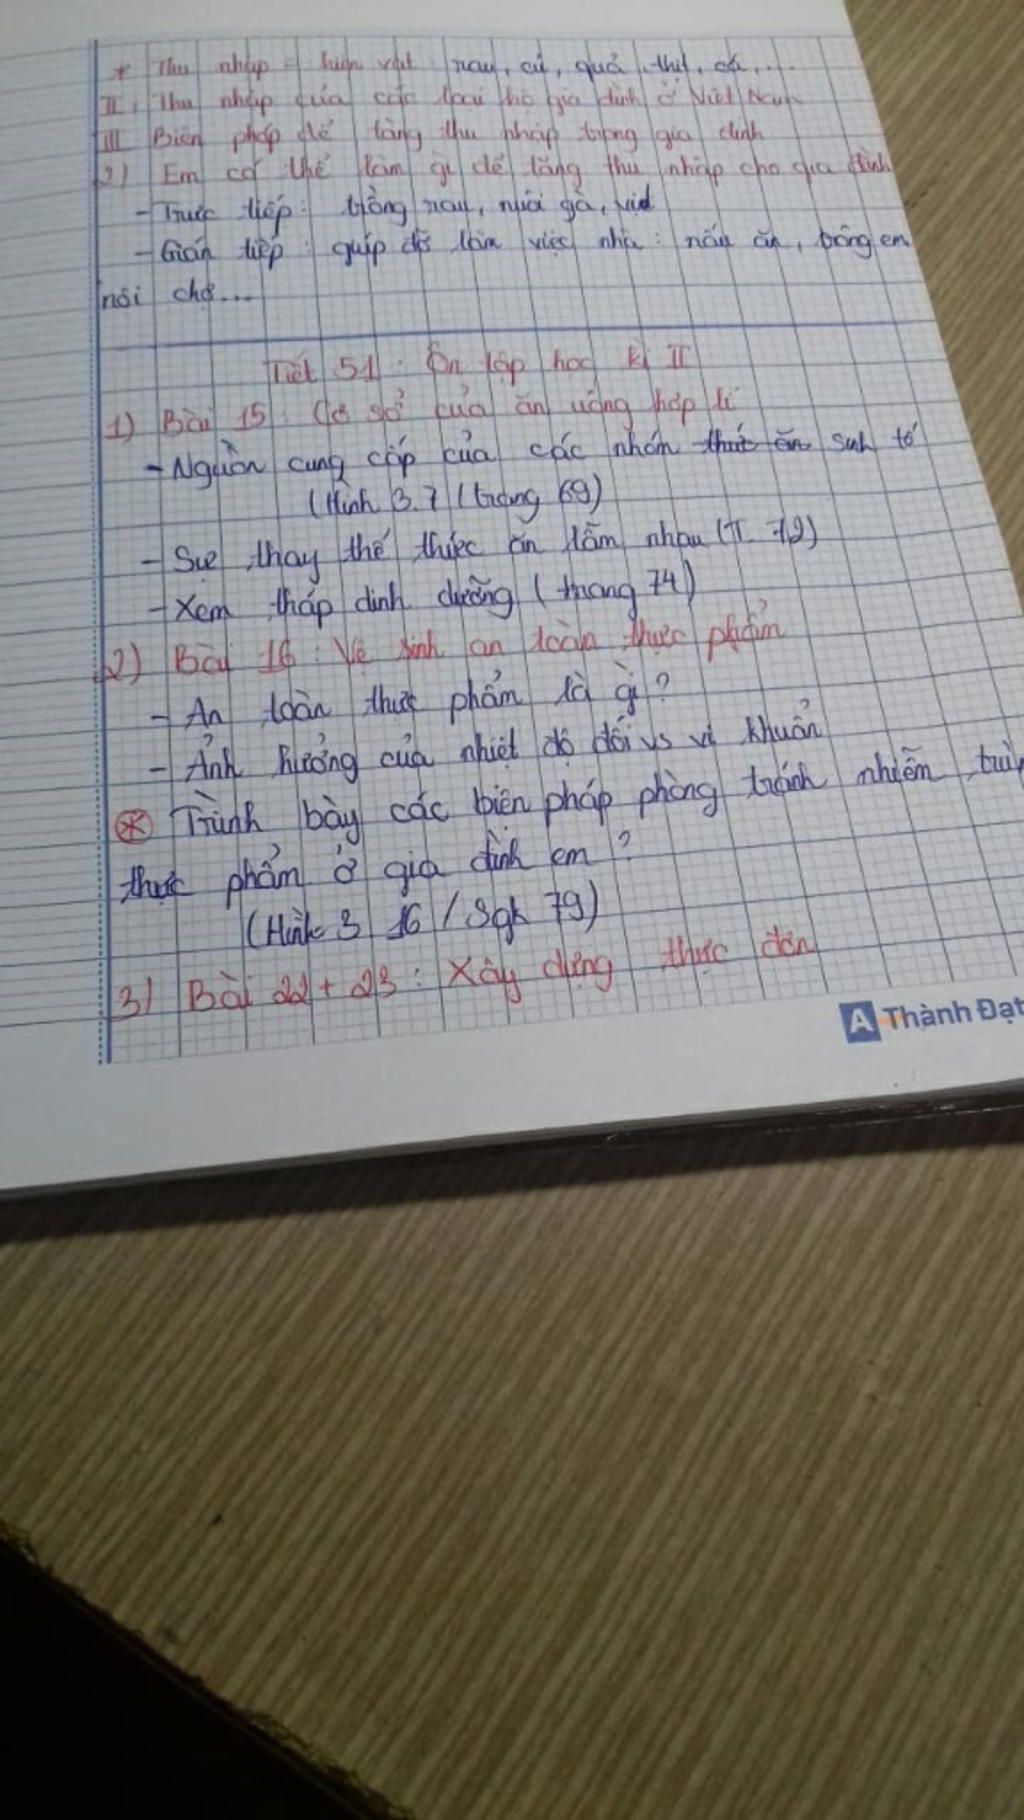 * Thu nhập = hiện vật: rau, củ, quả, thịt, cá,...
II, Thu nhập của các loại hộ gia đình ở Việt Nam
III Biện pháp để tăng thu nhập trong gia đình
2) Em có thể làm gì để tăng thu nhập cho gia đình
- Trực tiếp: trồng rau, nuôi gà, vịt
- Gián tiếp: giúp đỡ làm việc nhà: nấu ăn, trông em
nồi chợ...
Tiết 51: Ôn tập học kì II
1) Bài 15: Cơ sở của ăn uống hợp lí
- Nguồn cung cấp của các nhóm thức ăn sinh tố
(Hình 3.7 (trang 69)
- Sự thay thế thức ăn lẫn nhau (T. 72)
- Xem tháp dinh dưỡng (trang 74)
2) Bài 16: Vệ sinh an toàn thực phẩm
- An toàn thực phẩm là gì?
- Ảnh hưởng của nhiệt độ đối vs vi khuẩn
* Trình bày các biện pháp phòng tránh nhiễm trùng
thực phẩm ở gia đình em?
(Hình 3 16 / Sgk 79)
3) Bài 22 + 23: Xây dựng thực đơn
A Thành Đạt